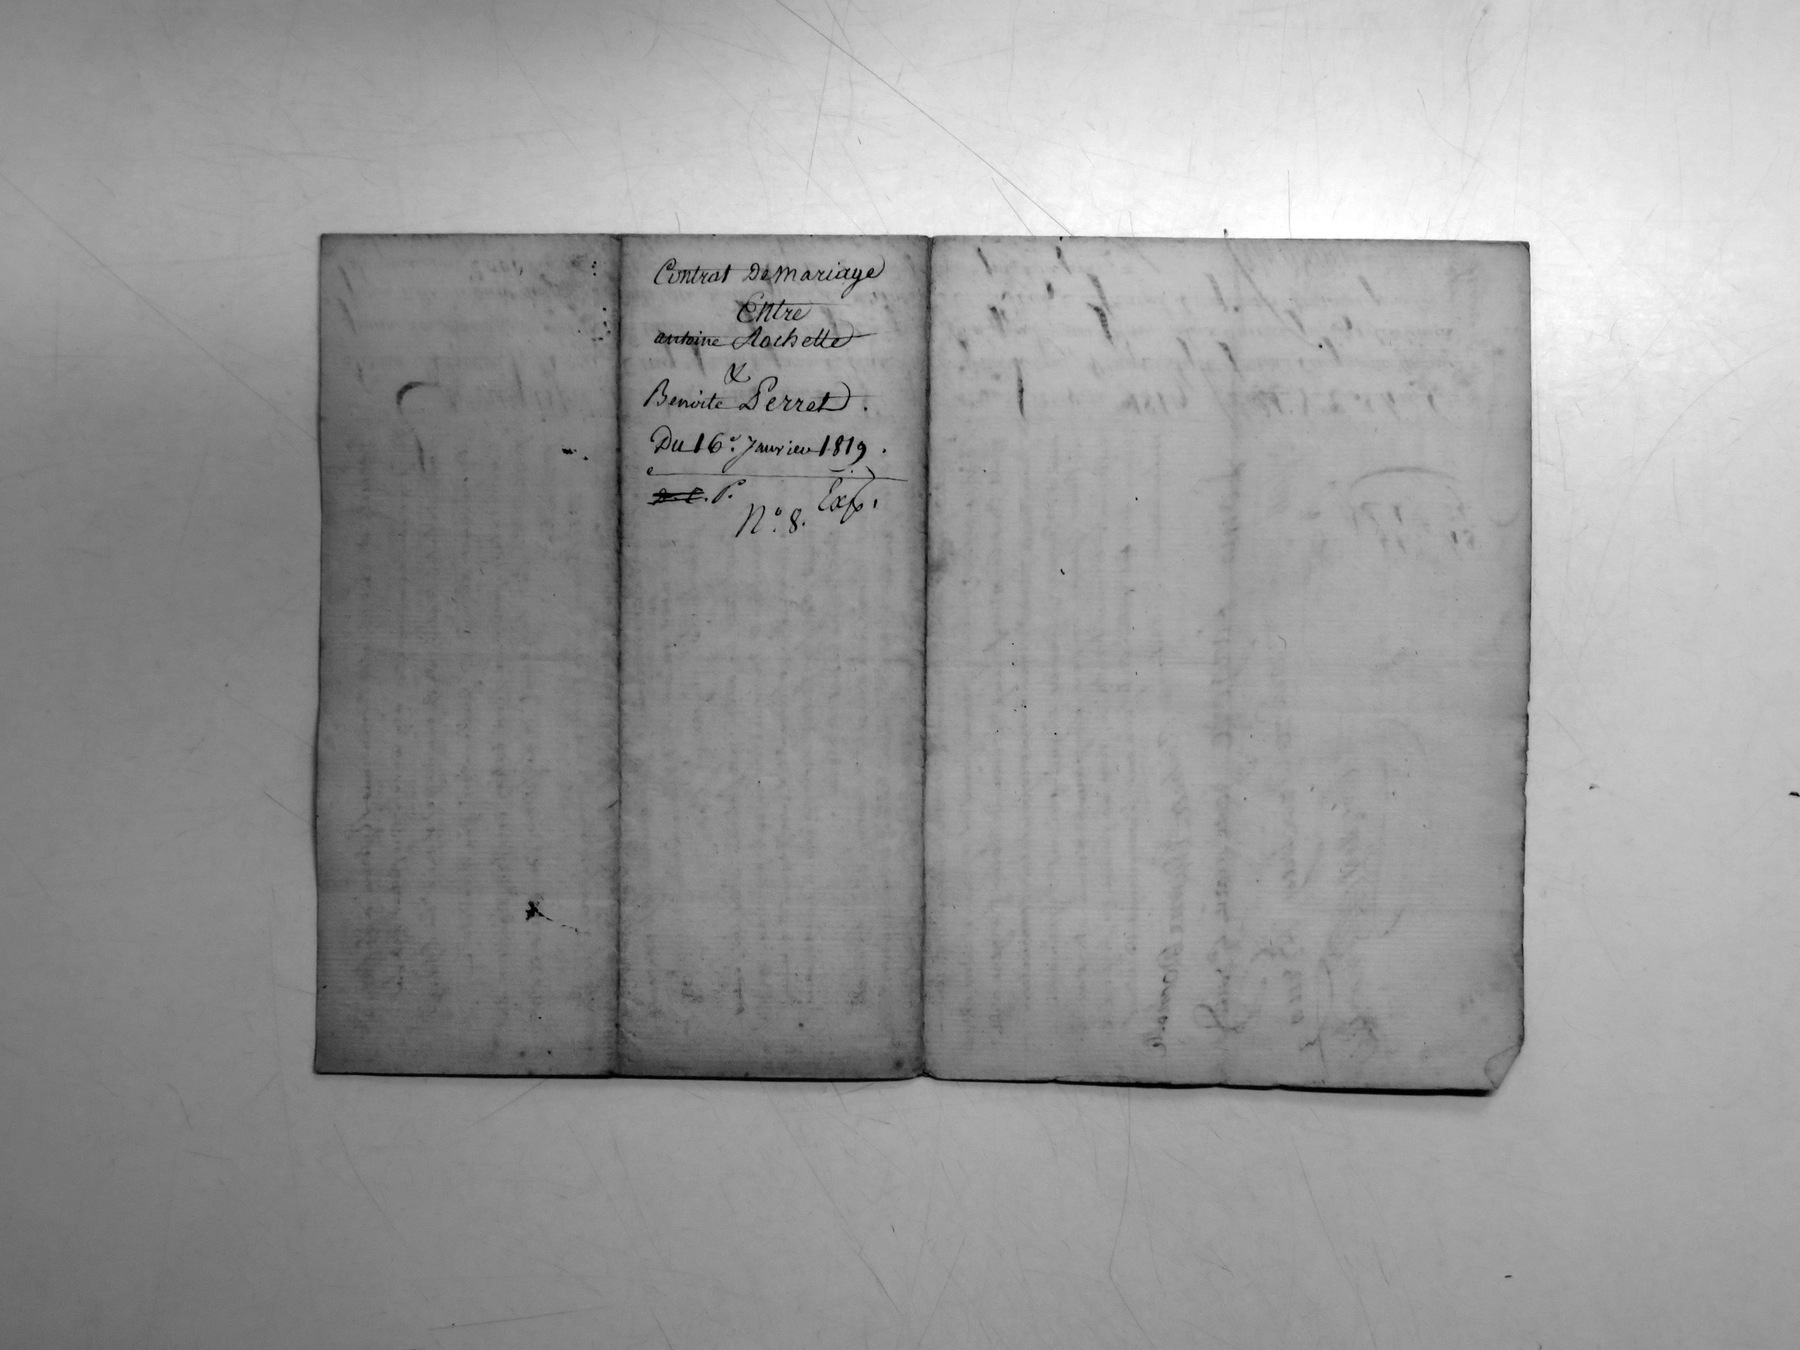 Contrat De mariage
Entre
antoine Rochette
&
Benoite Perret.
Du 16e. Janvier 1819.
P. Exp.
N° 8.